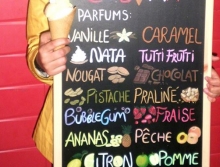 PARFUMS:
VANILLE CARAMEL
NATA TUTTI FRUTTI
NOUGAT CHOCOLAT
PISTACHE PRALINÉ
BUBBLEGUM FRAISE
ANANAS PÊCHE
CITRON POMME